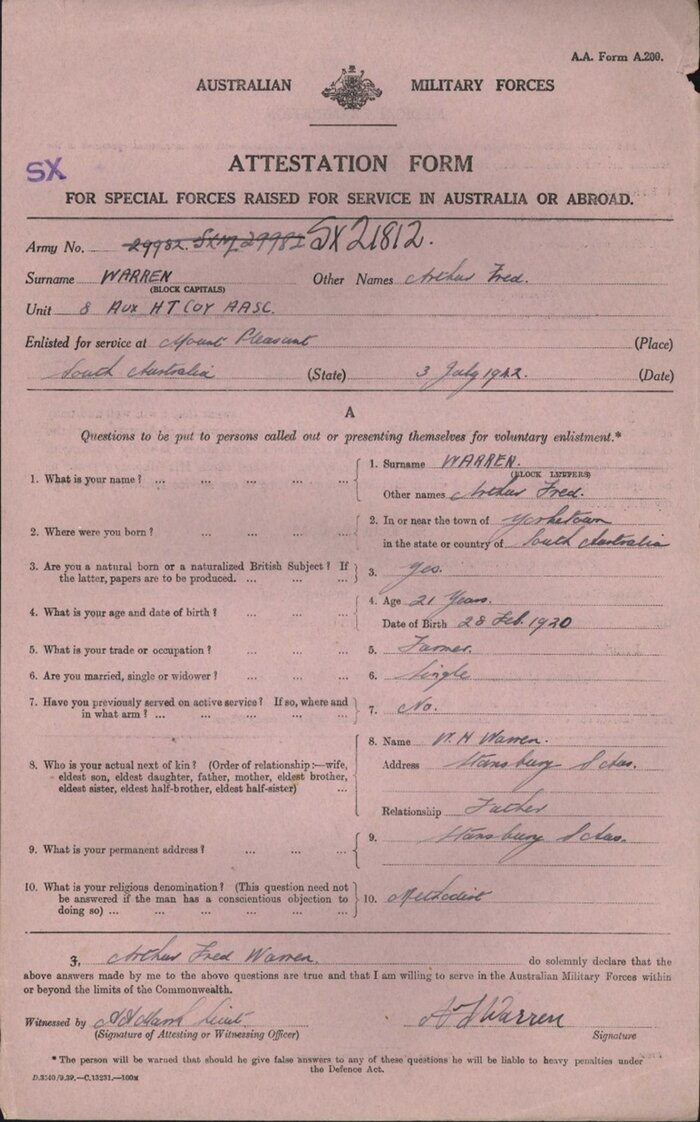 A.A. Form A.200.
AUSTRALIAN MILITARY FORCES
SX
ATTESTATION FORM
FOR SPECIAL FORCES RAISED FOR SERVICE IN AUSTRALIA OR ABROAD.
Army No. 29982. 29982 SX21812.
Surname WARREN Other Names Arthur Fred.
(BLOCK CAPITALS)
Unit 8 Aux HT Coy AASC.
Enlisted for service at Mount Pleasant (Place)
South Australia (State) 3 July 1942. (Date)
A
Questions to be put to persons called out or presenting themselves for voluntary enlistment.*
1. What is your name? ... ... ... ... 1. Surname WARREN.
(BLOCK LETTERS)
Other names Arthur Fred.
2. Where were you born? ... ... ... 2. In or near the town of Yorketown
in the state or country of South Australia
3. Are you a natural born or a naturalized British Subject? If
the latter, papers are to be produced. ... ... ... 3. Yes.
4. What is your age and date of birth? ... ... 4. Age 21 Years.
Date of Birth 28 Feb. 1920
5. What is your trade or occupation? ... ... ... 5. Farmer.
6. Are you married, single or widower? ... ... ... 6. Single
7. Have you previously served on active service? If so, where and
in what arm? ... ... ... ... ... 7. No.
8. Who is your actual next of kin? (Order of relationship:—wife,
eldest son, eldest daughter, father, mother, eldest brother,
eldest sister, eldest half-brother, eldest half-sister) ...
8. Name W. H Warren.
Address Stansbury S Aus.
Relationship Father
9. What is your permanent address? ... ... ... 9. Stansbury S Aus.
10. What is your religious denomination? (This question need not
be answered if the man has a conscientious objection to
doing so) ... ... ... ... ... ... 10. Methodist
I, Arthur Fred Warren. do solemnly declare that the
above answers made by me to the above questions are true and that I am willing to serve in the Australian Military Forces within
or beyond the limits of the Commonwealth.
Witnessed by Lieut A F Warren
(Signature of Attesting or Witnessing Officer) Signature
* The person will be warned that should he give false answers to any of these questions he will be liable to heavy penalties under
the Defence Act.
D.3540/9.39.—C.13231.—100M